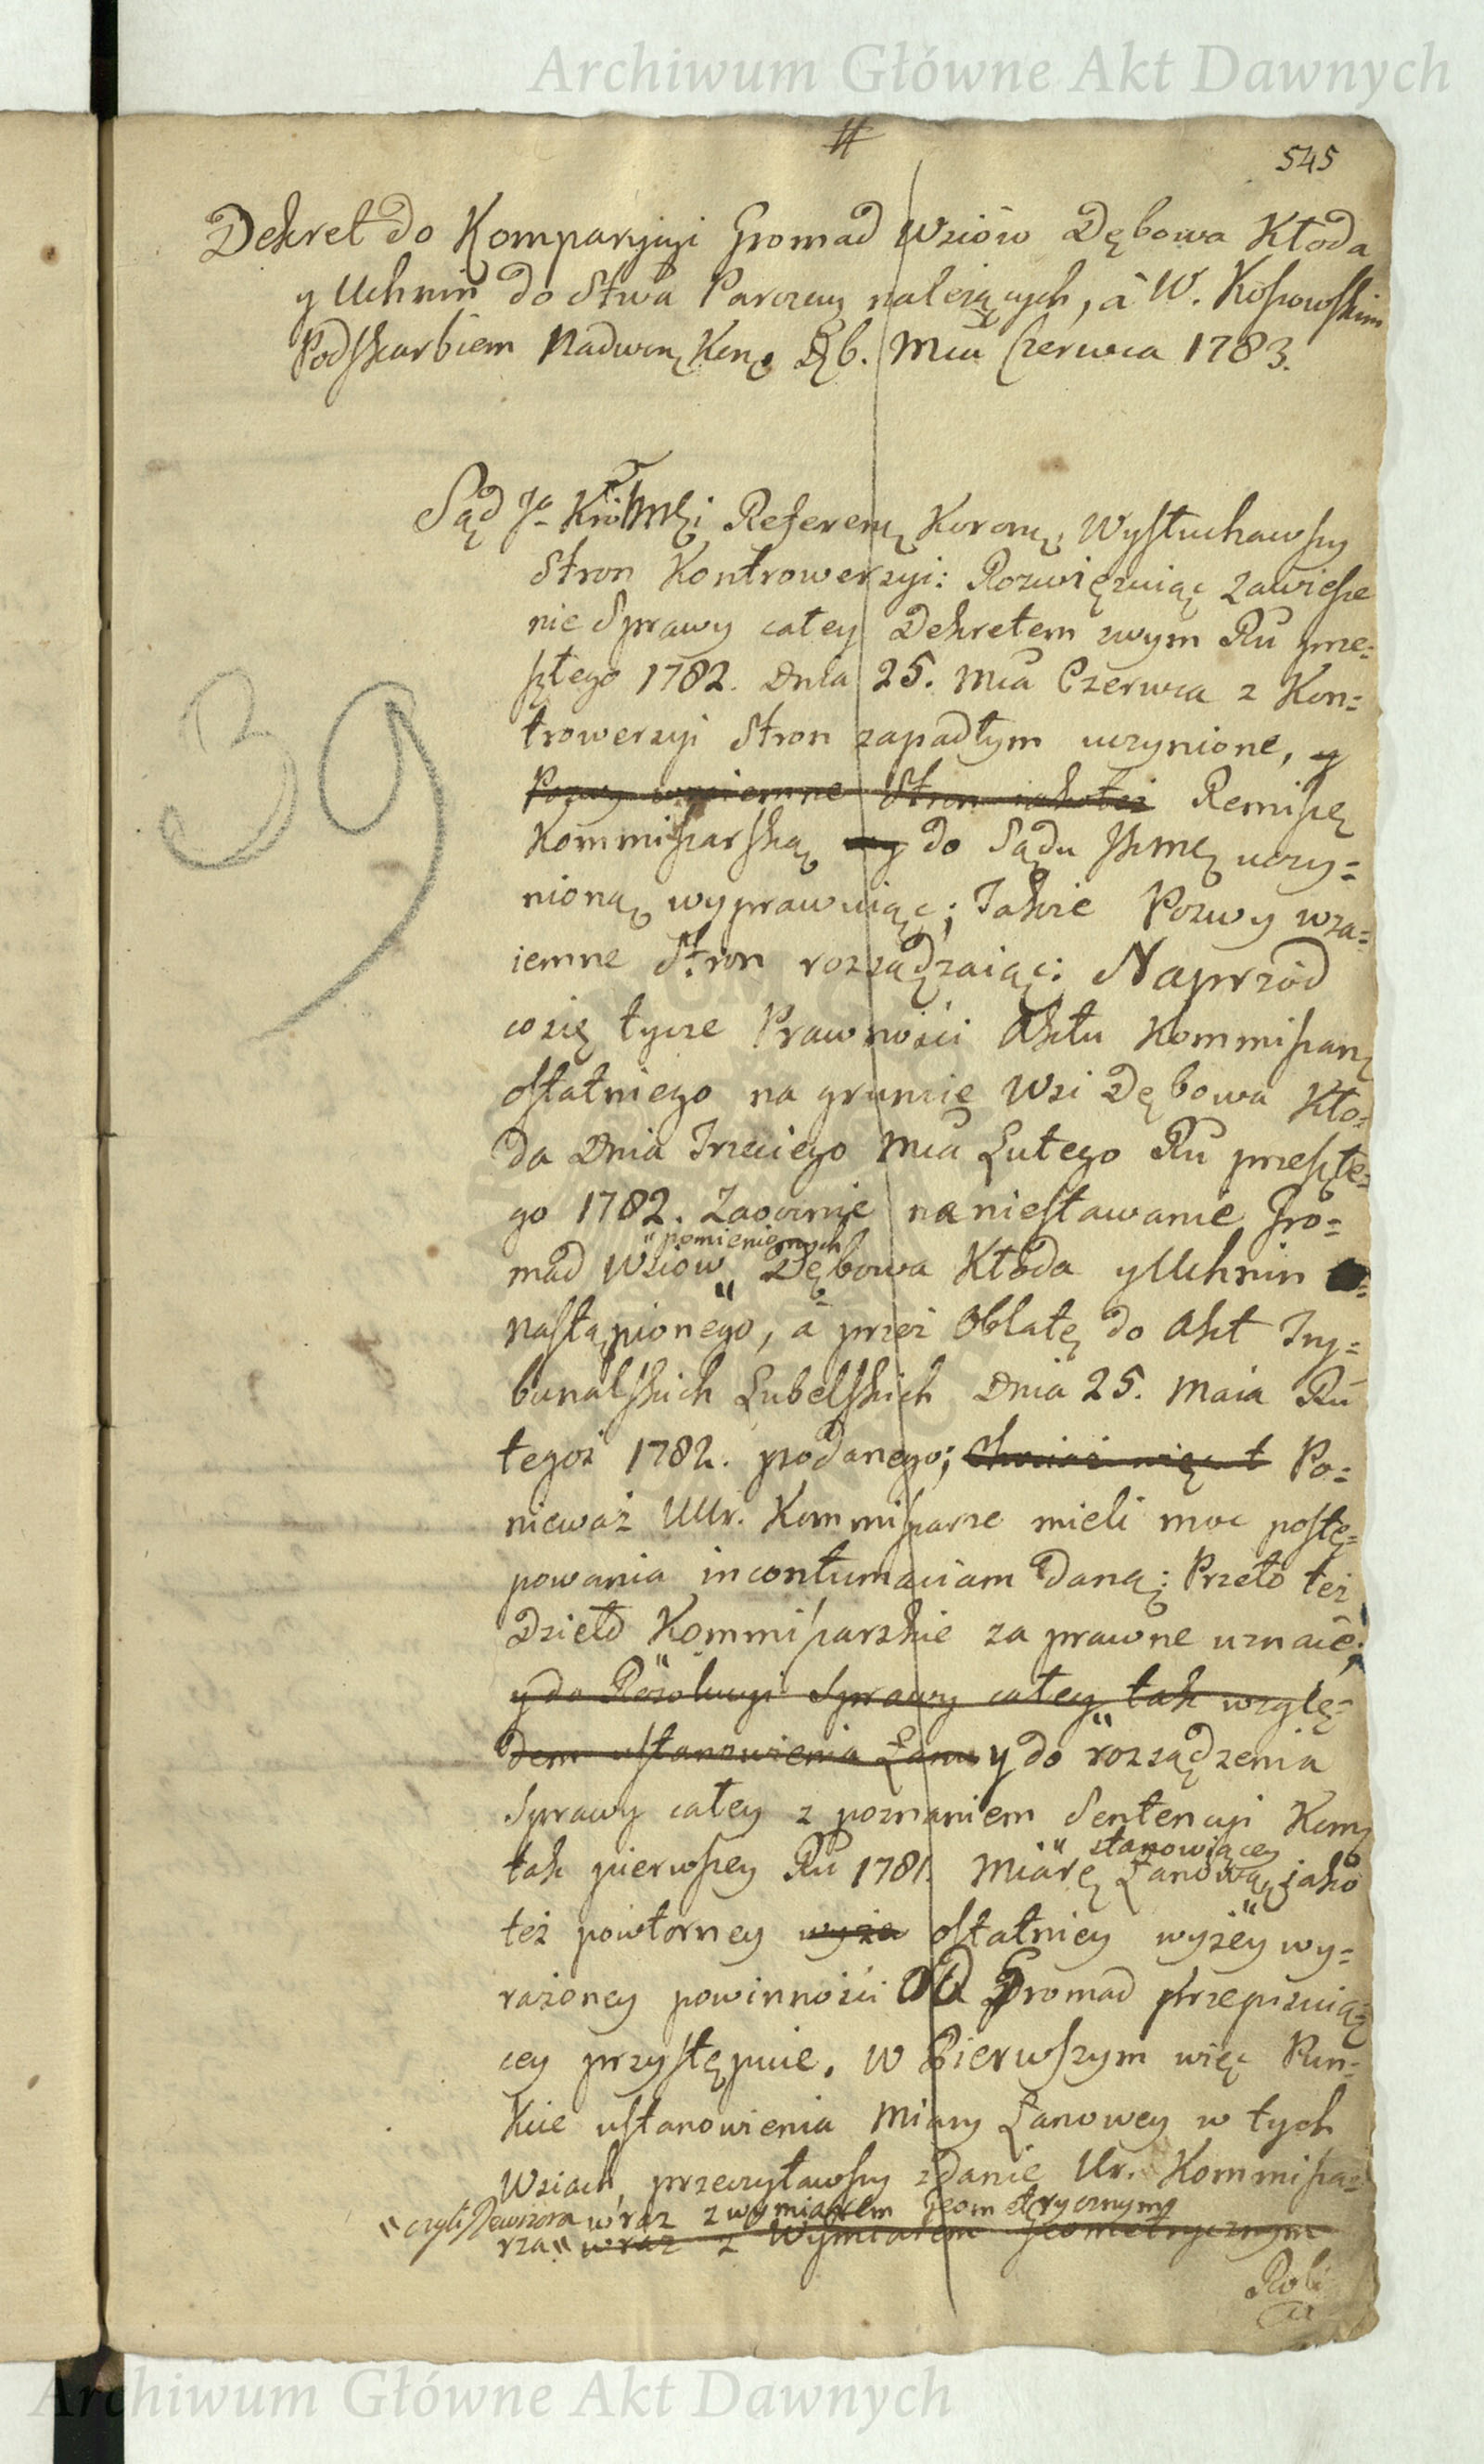 Archiwum Główne Akt Dawnych
545
Dekret do Komparycyi Gromad Wsiów Dębowa Kłoda
y Uchnin do Stwa Parczew należących, a W. Kossowskim
Podskarbiem Nadwor. Kor. Db. Mca Czerwca 1783.
Sąd Jo KróMći Referen. Koron. Wysłuchawszy
Stron Kontrowersyi: Rozwięzuiąc zawiesze
nie Sprawy całey Dekretem swym Ru prze=
szłego 1782. Dnia 25. Mca Czerwca z Kon=
trowersyi Stron zapadłym uczynione, y
39
Pozwy wzaiemne Stron iakoteż Remissę
Kommissarską do Sądu JKMci uczy=
nioną wyprawuiąc; Także Pozwy wza=
iemne Stron rozsądzaiąc: Naprzód
co się tycze Prawności Aktu Kommissar.
ostatniego na gruncie Wsi Dębowa Kło=
da Dnia Trzeciego Mca Lutego Ru przeszłe=
go 1782. Zaocznie na niestawanie Gro=
"pomienionych
mad Wsiów " Dębowa Kłoda y Uchnin
nastąpionego, a przez Oblatę do Akt Try=
bunalskich Lubelskich Dnia 25. Maia Ru
tegoż 1782. podanego; Chociaż więc t Po=
nieważ UUr. Kommissarze mieli moc postę=
powania in contumaciam daną; Przeto też
Dzieło Kommissarskie za prawne uznaie;
y do Rezolucyi Sprawy całey tak wzglę=
dem ustanowienia Łanu y do rozsądzenia
Sprawy całey z poznaniem Sentencyi Kom.
stanowiącey
tak pierwszey Ru 1781. Miarę Łanową, jako
też powtorney wyże ostatniey wyżey wy=
rażoney powinności od Gromad przepisuią=
cey przystępuie. W Pierwszym więc Pun=
kcie ustanowienia Miary Łanowey w tych
Wsiach, przeczytawszy zdanie Ur. Kommissa=
"czyli Rewizora wraz z wymiarem Geometrycznym
rza" wraz z Wymiarem Geometrycznym
Archiwum Główne Akt Dawnych